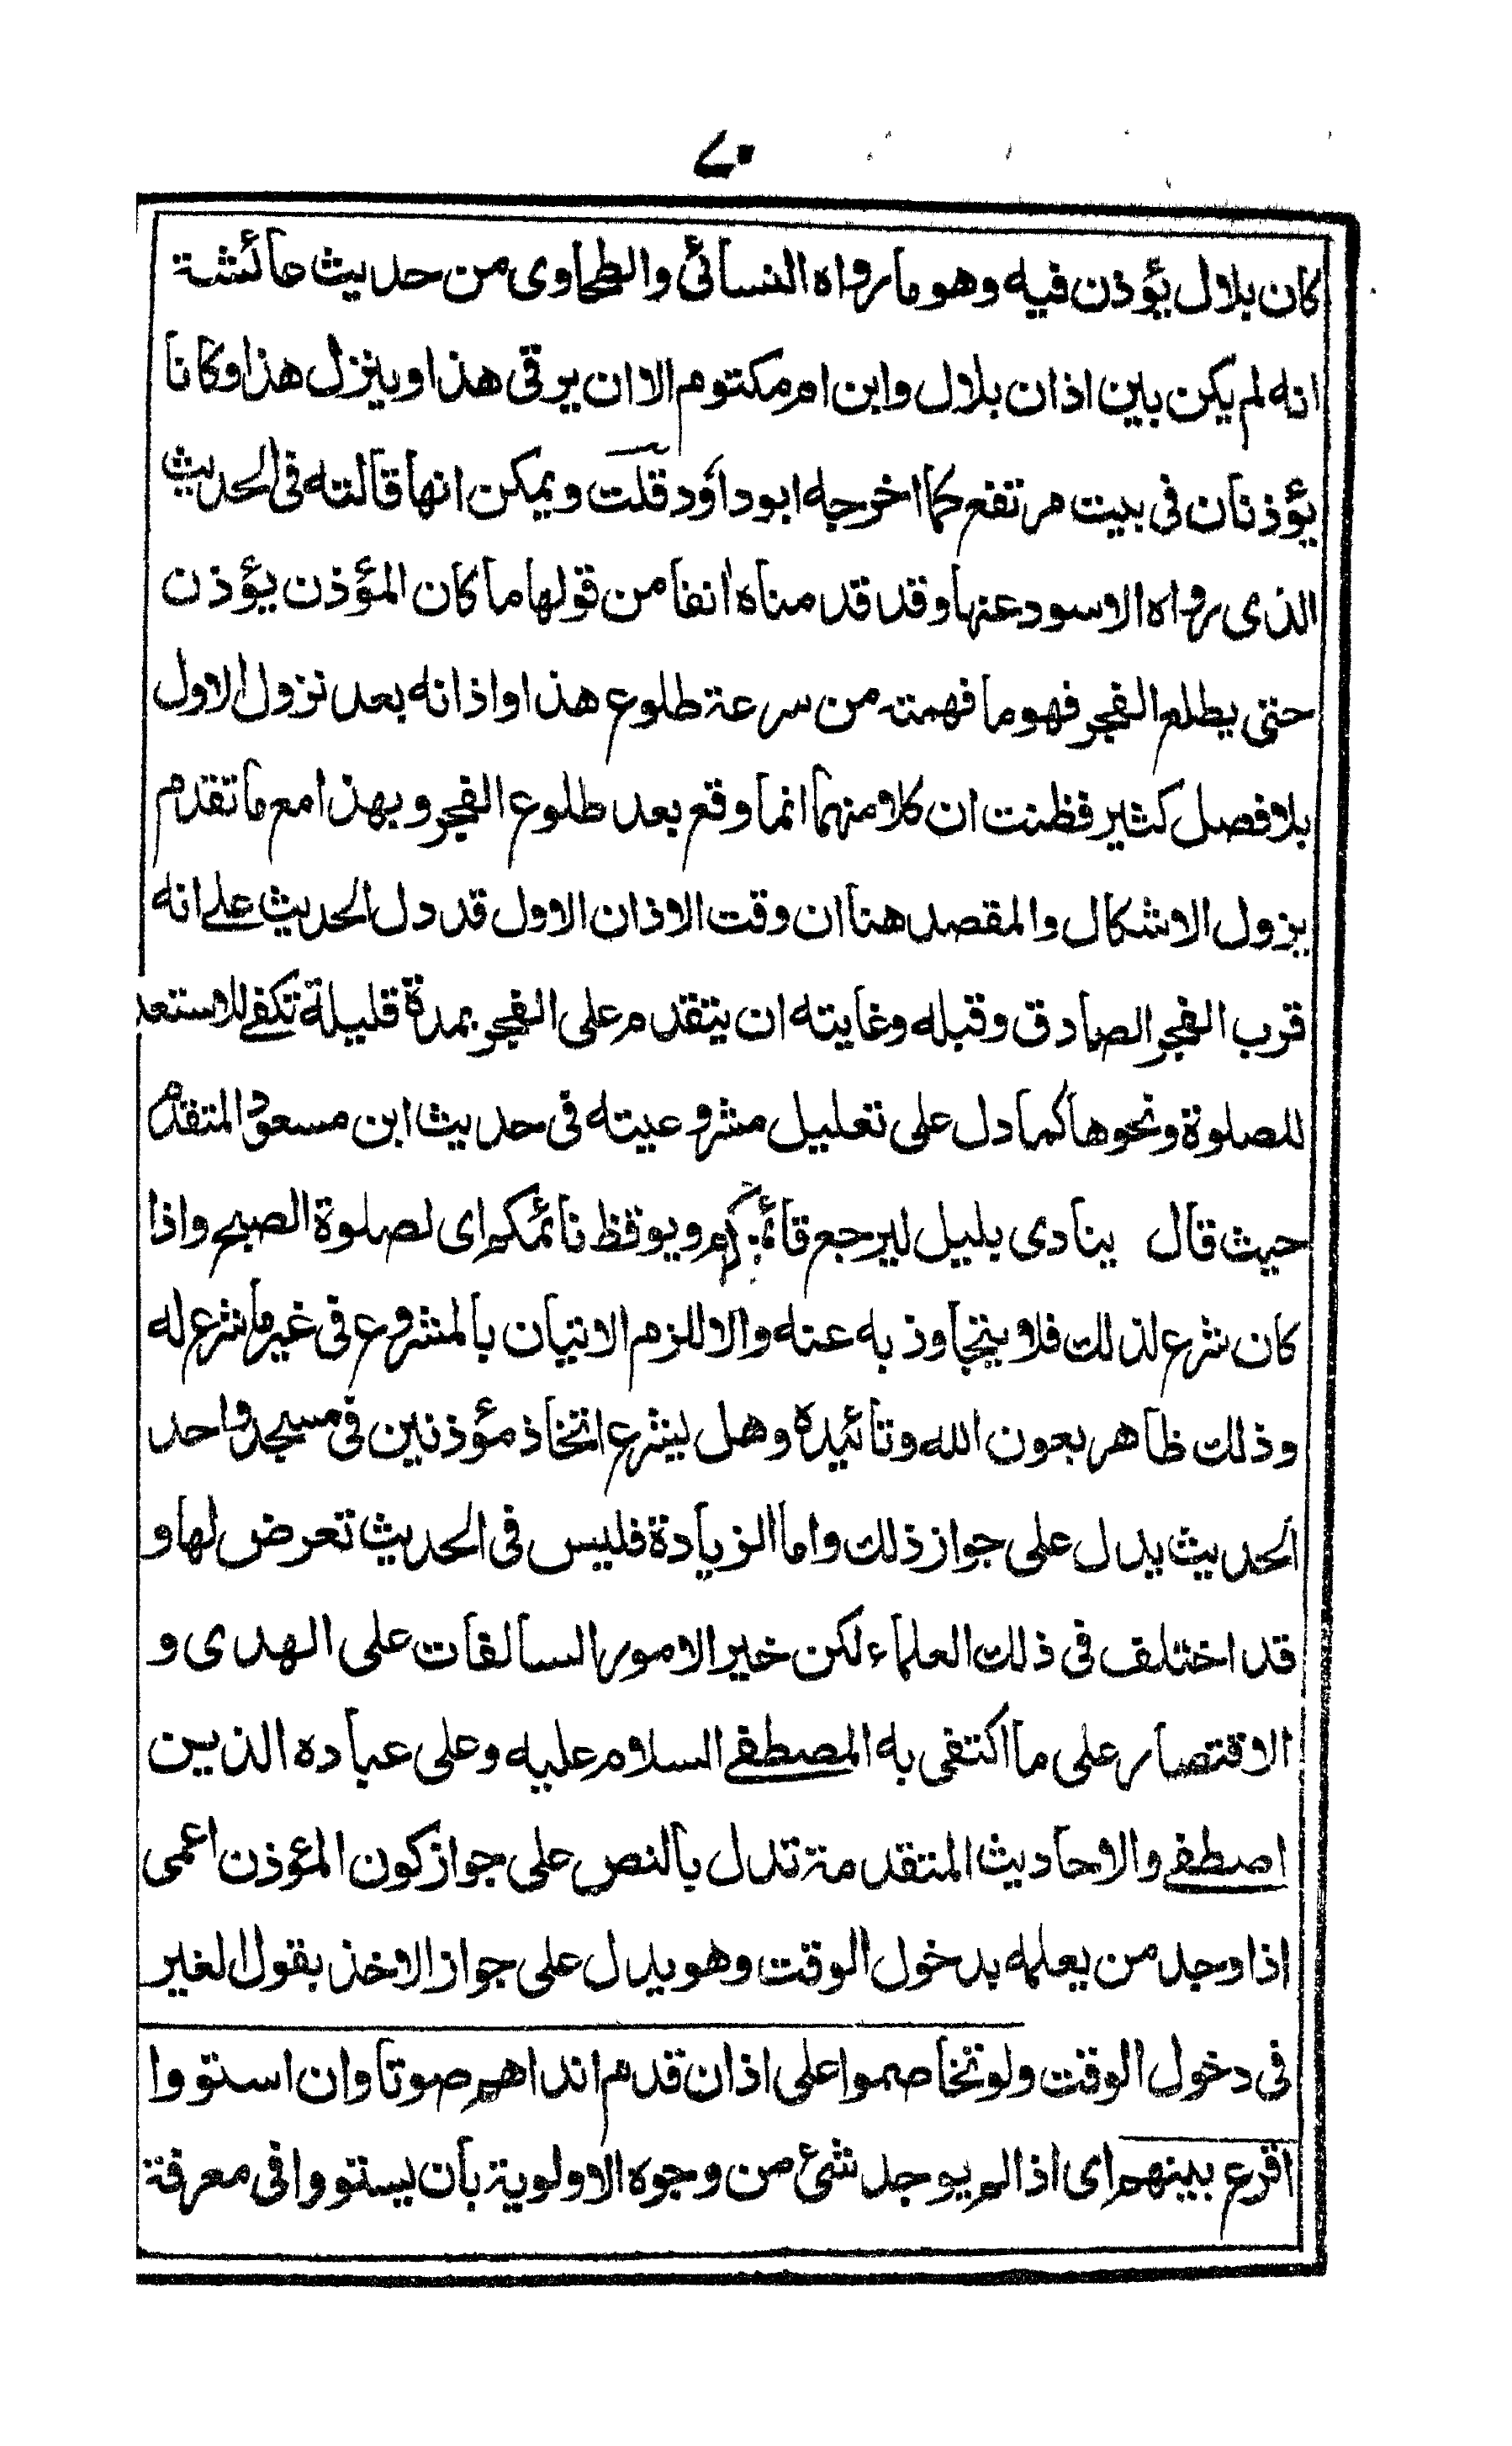 ٧٠
كان بلال يؤذن فيه وهو ما رواه النسائى والطحاوى من حديث عائشة
انه لم يكن بين اذان بلال وابن ام مكتوم الا ان يرقى هذا وينزل هذا وكانا
يؤذنان فى بيت مرتفع كما اخرجه ابوداؤد قلت ويمكن انها قالته فى الحديث
الذى رواه الاسود عنها وقد قدمناه انفا من قولها ما كان المؤذن يؤذن
حتى يطلع الفجر فهو ما فهمته من سرعة طلوع هذا واذانه بعد نزول الاول
بلا فصل كثير فظنت ان كلا منهما انما وقع بعد طلوع الفجر وبهذا مع ما تقدم
يزول الاشكال والمقصد هنا ان وقت الاذان الاول قد دل الحديث على انه
قرب الفجر الصادق وقبله وغايته ان يتقدم على الفجر بمدة قليلة تكفى للاستعد
للصلوة ونحوها كما دل على تعليل مشروعيته فى حديث ابن مسعود المتقدم
حيث قال ينادى بليل ليرجع قائمكم ويوقظ نائمكم اى لصلوة الصبح واذا
كان شرع لذلك فلا يتجاوز به عنه والا للزم الاتيان بالمشروع فى غير ما شرع له
وذلك ظاهر بعون الله وتائيده وهل يشرع اتخاذ مؤذنين فى مسجد واحد
الحديث يدل على جواز ذلك واما الزيادة فليس فى الحديث تعرض لها و
قد اختلف فى ذلك العلماء لكن خير الامور السالفات على الهدى و
الاقتصار على ما اكتفى به المصطفى السلام عليه وعلى عباده الذين
اصطفى والاحاديث المتقدمة تدل بالنص على جواز كون المؤذن اعمى
اذا وجد من يعلمه بدخول الوقت وهو يدل على جواز الاخذ بقول الغير
فى دخول الوقت ولو تخاصموا على اذان قدم انداهم صوتا وان استووا
اقرع بينهم اى اذا لم يوجد شئ من وجوه الاولوية بان يستووا فى معرفة